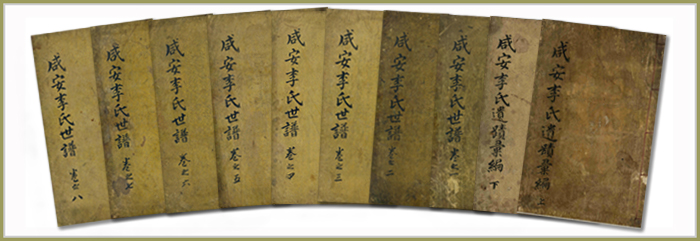 咸安李氏遺蹟彙編 上
咸安李氏遺蹟彙編 下
咸安李氏世譜 卷之一
咸安李氏世譜 卷之二
咸安李氏世譜 卷之三
咸安李氏世譜 卷之四
咸安李氏世譜 卷之五
咸安李氏世譜 卷之六
咸安李氏世譜 卷之七
咸安李氏世譜 卷之八